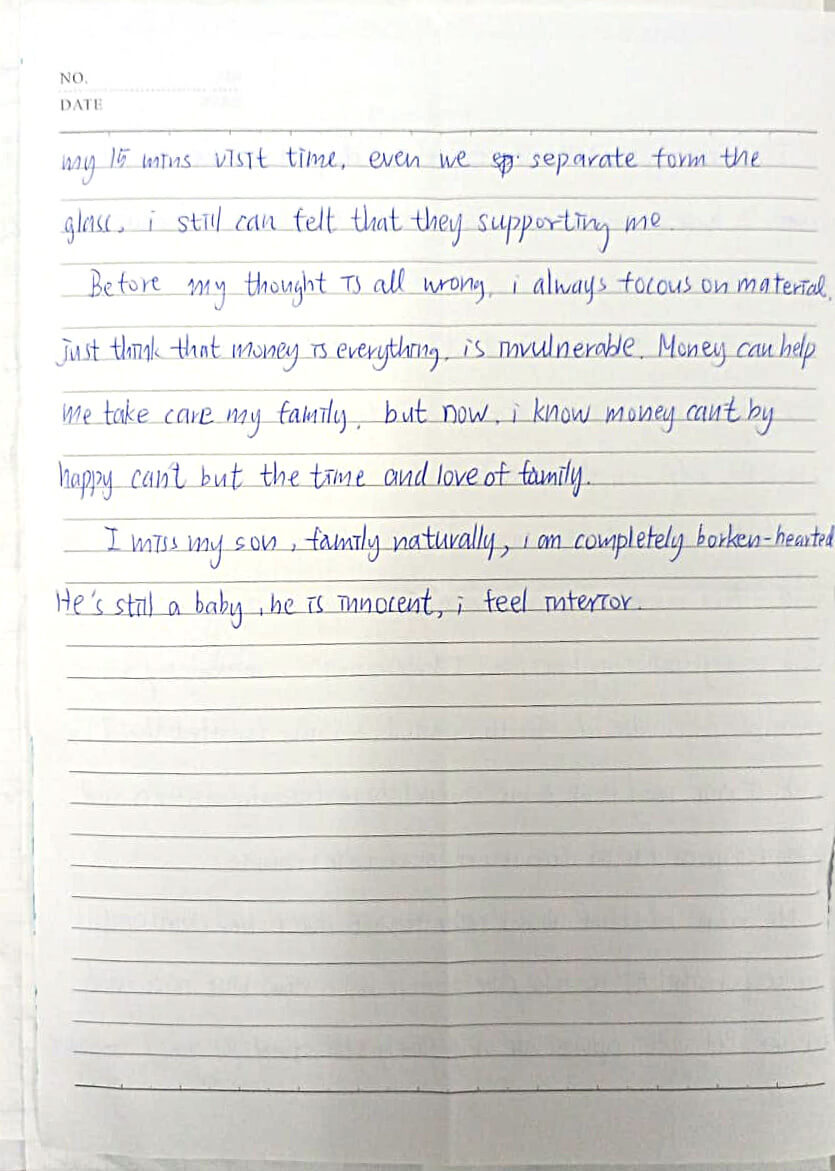 NO.
DATE
my 15 mins visit time, even we separate form the
glass, i still can felt that they supporting me.
Before my thought is all wrong, i always focous on material,
just think that money is everything, is invulnerable. Money can help
me take care my family, but now, i know money can't by
happy can't but the time and love of family.
I miss my son, family naturally, i am completely borken-hearted
He's still a baby, he is innocent, i feel interior.